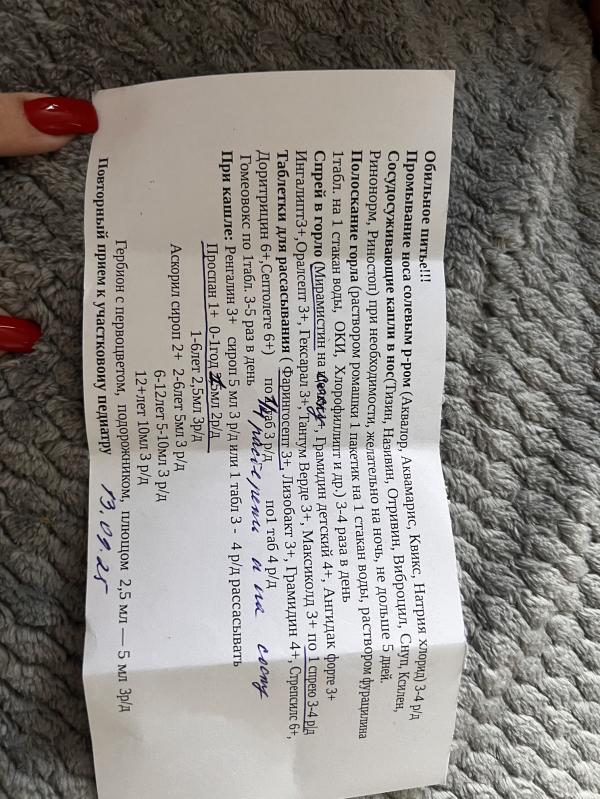 Обильное питье!!!
Промывание носа солевым р-ром (Аквалор, Аквамарис, Квикс, Натрия хлорид) 3-4 р/д
Сосудосуживающие капли в нос(Тизин, Називин, Отривин, Виброцил, Снуп, Ксилен,
Ринонорм, Риностоп) при необходимости, желательно на ночь, не дольше 5 дней.
Полоскание горла (раствором ромашки 1 пакетик на 1 стакан воды, раствором фурацилина
1табл. на 1 стакан воды, ОКИ, Хлорофиллипт и др.) 3-4 раза в день
Спрей в горло (Мирамистин на соску, Грамидин детский 4+, Ангидак форте 3+
Ингалипт3+,Оралсепт 3+, Гексорал 3+,Тантум Верде 3+, Максиколд 3+ по 1 спрею 3-4 р/д
Таблетки для рассасывания ( Фарингосепт 3+, Лизобакт 3+, Грамидин 4+, Стрепсилс 6+,
Доритрицин 6+,Септолете 6+) по таб 3 р/д по1 таб 4 р/д
Гомеовокс по 1табл. 3-5 раз в день и на соску
При кашле: Ренгалин 3+ сироп 5 мл 3 р/д или 1 табл 3 - 4 р/д рассасывать
Проспан 1+ 0-1год 2,5мл 2р/д
1-6лет 2,5мл 3р/д
Аскорил сироп 2+ 2-6лет 5мл 3 р/д
6-12лет 5-10мл 3 р/д
12+лет 10мл 3 р/д
Гербион с первоцветом, подорожником, плющом 2,5 мл — 5 мл 3р/д
Повторный прием к участковому педиатру 13.09.25